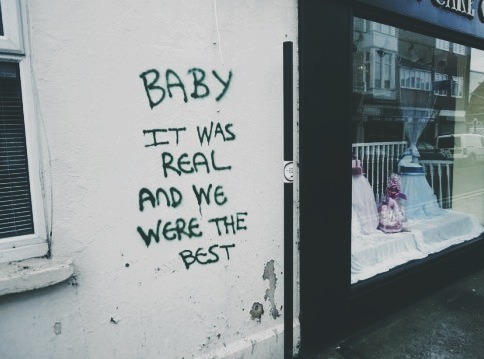 BABY
IT WAS
REAL
AND WE
WERE THE
BEST
CAKE